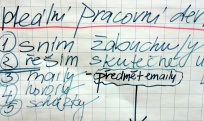 ideální pracovní den
① sním
② řeším skutečné
③ maily - předmět emaily
④ hovory
⑤ schůzky